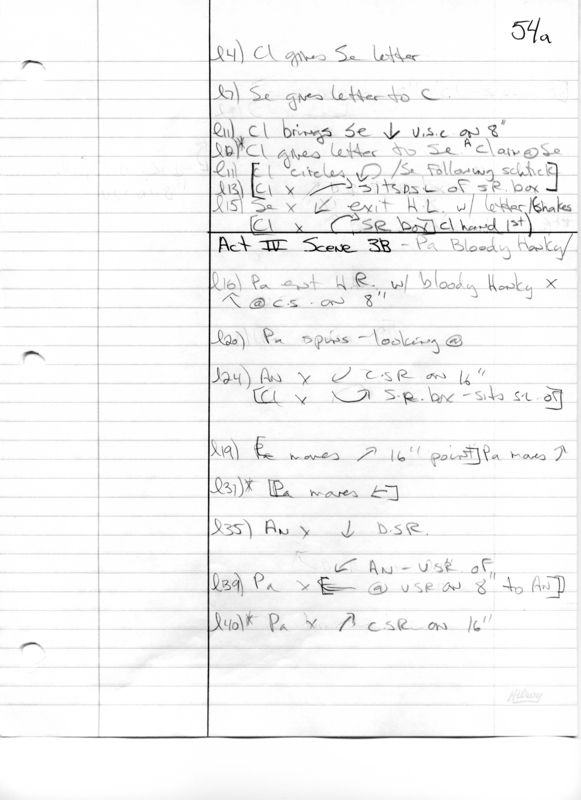 54a
l4) Cl gives Se letter
l7) Se gives letter to C
l11) Cl brings Se ↓ U.S.C on 8"
l12)* Cl gives letter to Se ^ Clair @ Se
l11) [Cl circles /Se following schtick]
l13) [Cl x → sits D.S.L of S.R. box]
l15) Se x ↙ exit H.L. w/ letter/(shakes
[Cl x SR box] Cl hand 1st)
Act IV Scene 3B - Pa Bloody Hanky
l16) Pa ent H.R. w/ bloody Hanky x
↑ @ C.S. on 8"
l20) Pa spins - looking @
l24) An x ↙ C.S.R on 16"
[Cl x S.R. box - sits S.L of]
l19) moves ↗ 16" point] Pa moves ↗
l31)* [Pa moves ←]
l35) An x ↓ D.S.R.
↙ An - USR of
l39) Pa x [← @ USR on 8" to An]
l40)* Pa x ↗ C.S.R on 16"
Hilroy